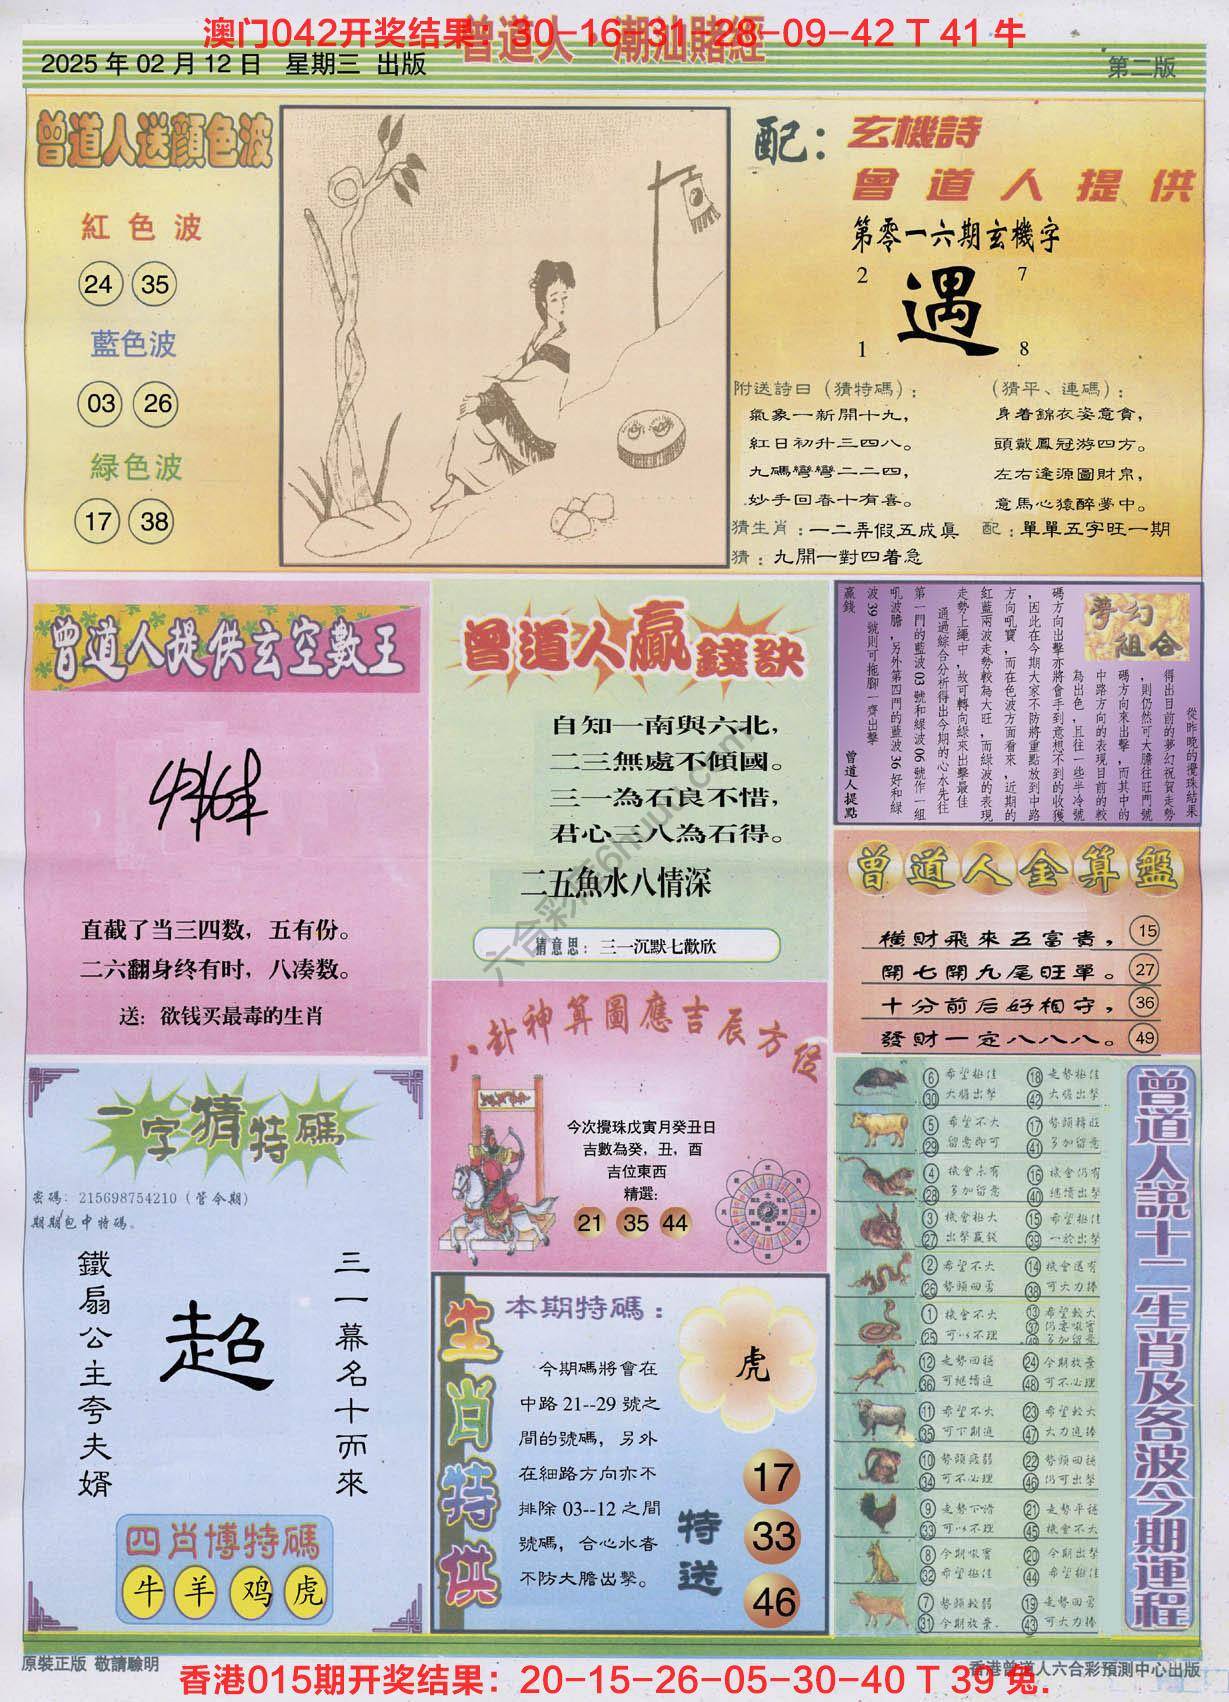 澳门042开奖结果：30-16-31-28-09-42 T 41 牛
曾道人 潮汕賭經
2025 年 02 月 12 日 星期三 出版
第二版
曾道人送顔色波
紅色波
24 35
藍色波
03 26
緑色波
17 38
配：
玄機詩
曾道人提供
第零一六期玄機字
2 7
遇
1 8
附送詩曰（猜特碼）：
氣象一新開十九，
紅日初升三四八。
九碼彎彎二二四，
妙手回春十有喜。
（猜平、連碼）：
身着錦衣姿意貪，
頭戴鳳冠游四方。
左右逢源圖財帛，
意馬心猿醉夢中。
猜生肖：一二弄假五成真
配：單單五字旺一期
猜：九開一對四着急
曾道人提供玄空數王
直截了当三四数，五有份。
二六翻身终有时，八凑数。
送：欲钱买最毒的生肖
曾道人贏錢訣
自知一南與六北，
二三無處不傾國。
三一為石良不惜，
君心三八為石得。
二五魚水八情深
猜意思：三一沉默七歡欣
夢幻組合
從昨晚的攪珠結果
得出目前的夢幻祝賀走勢
，則仍然可大膽往旺門號
碼方向來出擊，而其中的
中路方向的表現目前的較
為出色，且往一些半冷號
碼方向出擊亦將會手到意想不到的收獲
，因此在今期大家不防將重點放到中路
方向吼寶，而在色波方面看來，近期的
紅藍兩波走勢較為大旺，而綠波的表現
走勢上繩中，故可轉向綠來出擊最佳
通過綜合分析得出今期的心水先往
第一門的藍波03號和綠波06號作一組
吼波膽，另外第四門的藍波36好和綠
波39號則可拖腳一齊出擊
贏錢
曾道人提點
曾道人金算盤
橫財飛來五富貴，15
開七開九尾旺單。27
十分前后好相守，36
發財一定八八八。49
八卦神算圖應吉辰方位
今次攪珠戊寅月癸丑日
吉數為癸，丑，酉
吉位東西
精選：
21 35 44
一字猜特碼
密碼：215698754210（管令期）
期期包中特碼。
三一幕名十而來
超
鐵扇公主夸夫婿
四肖博特碼
牛 羊 鸡 虎
生肖特供
本期特碼：
虎
今期碼將會在
中路 21--29 號之
間的號碼，另外
在細路方向亦不
排除 03--12 之間
號碼，合心水者
不防大膽出擊。
特送
17
33
46
曾道人説十二生肖及各波今期運程
6 30 希望極佳 大膽出擊 18 42 走勢極佳 大膽出擊
5 29 希望不大 留意即可 17 41 勢頭轉旺 多加留意
4 28 機會未有 多加留意 16 40 機會仍有 继續出擊
3 27 機會極大 出擊贏錢 15 39 希望極佳 一於出擊
2 26 希望不大 勢頭回勇 14 38 機會還有 可大力捧
1 25 機會不大 可以不理 13 37 49 希望較大 仍要吼實 多加留意
12 36 走勢回穩 可继續追 24 48 今期放棄 可不必理
11 35 希望不大 可下期追 23 47 希望較大 大力追捧
10 34 勢頭疲弱 可不必理 22 46 勢頭回穩 仍可出擊
9 33 走勢下滑 可以不理 21 45 走勢平穩 機會不大
8 32 今期吼實 希望極佳 20 44 今期出擊 希望極佳
7 31 勢頭較弱 今期放棄 19 43 走勢回勇 可大力捧
原裝正版 敬請驗明
香港曾道人六合彩預測中心出版
香港015期开奖结果：20-15-26-05-30-40 T 39 兔.